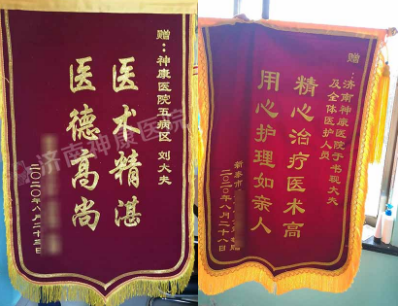 赠：神康医院五病区 刘大夫
医术精湛
医德高尚
二〇二〇年八月二十三日
济南神康医院
赠：济南神康医院于书现大夫
及全体医护人员
精心治疗医术高
用心护理如亲人
二〇二〇年八月二十八日